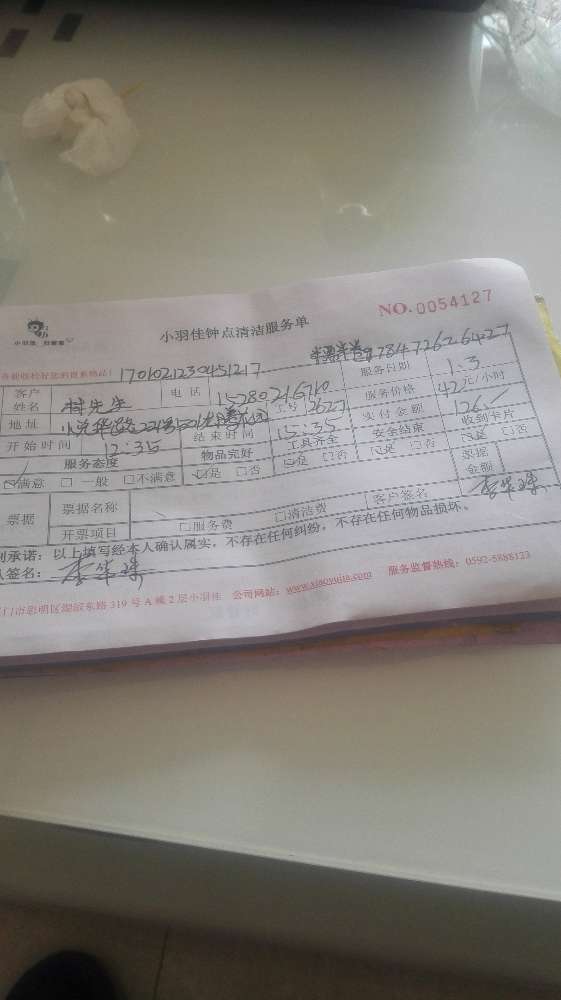 NO.0054127
小羽佳钟点清洁服务单
小羽佳 好管家
1701021230451217
客户姓名 林先生 电话 服务日期 1.3
地址 工号 3627 服务价格 42元/小时
开始时间 12:35 结束时间 15:35 实付金额 126
服务态度 物品完好 工具齐全 安全结束 收到卡片
☑满意 □一般 □不满意 ☑是 □否 ☑是 □否 ☑是 □否 ☑是 □否
票据 票据名称 票据金额
开票项目 □服务费 □清洁费 客户签名
承诺：以上填写经本人确认属实，不存在任何纠纷，不存在任何物品损坏。
签名：
门市思明区湖滨东路319号A幢2层小羽佳 公司网站：www.xiaoyujia.com 服务监督热线：0592-5888123